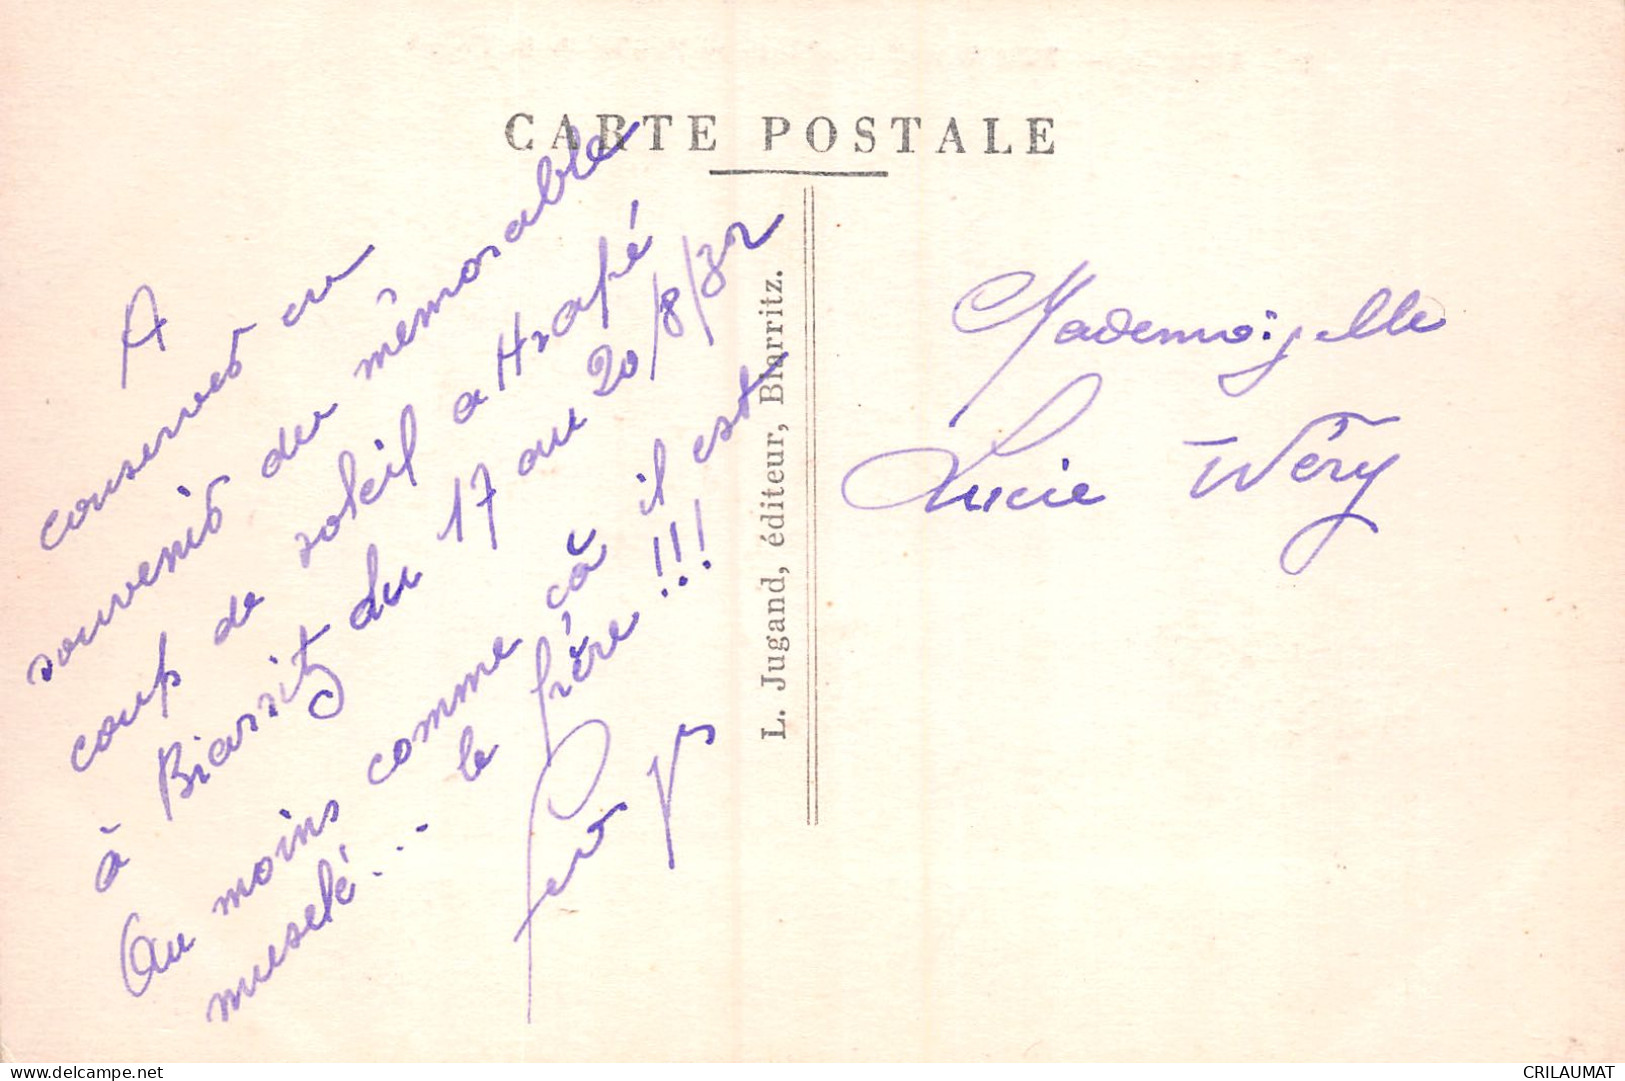 CARTE POSTALE
A
conserver en
souvenir du mémorable
coup de soleil attrapé
à Biarritz du 17 au 20/8/32
Au moins comme çà il est
muselé... le frère !!!
L. Jugand, éditeur, Biarritz.
Mademoiselle
Lucie Wéry
www.delcampe.net
CRILAUMAT